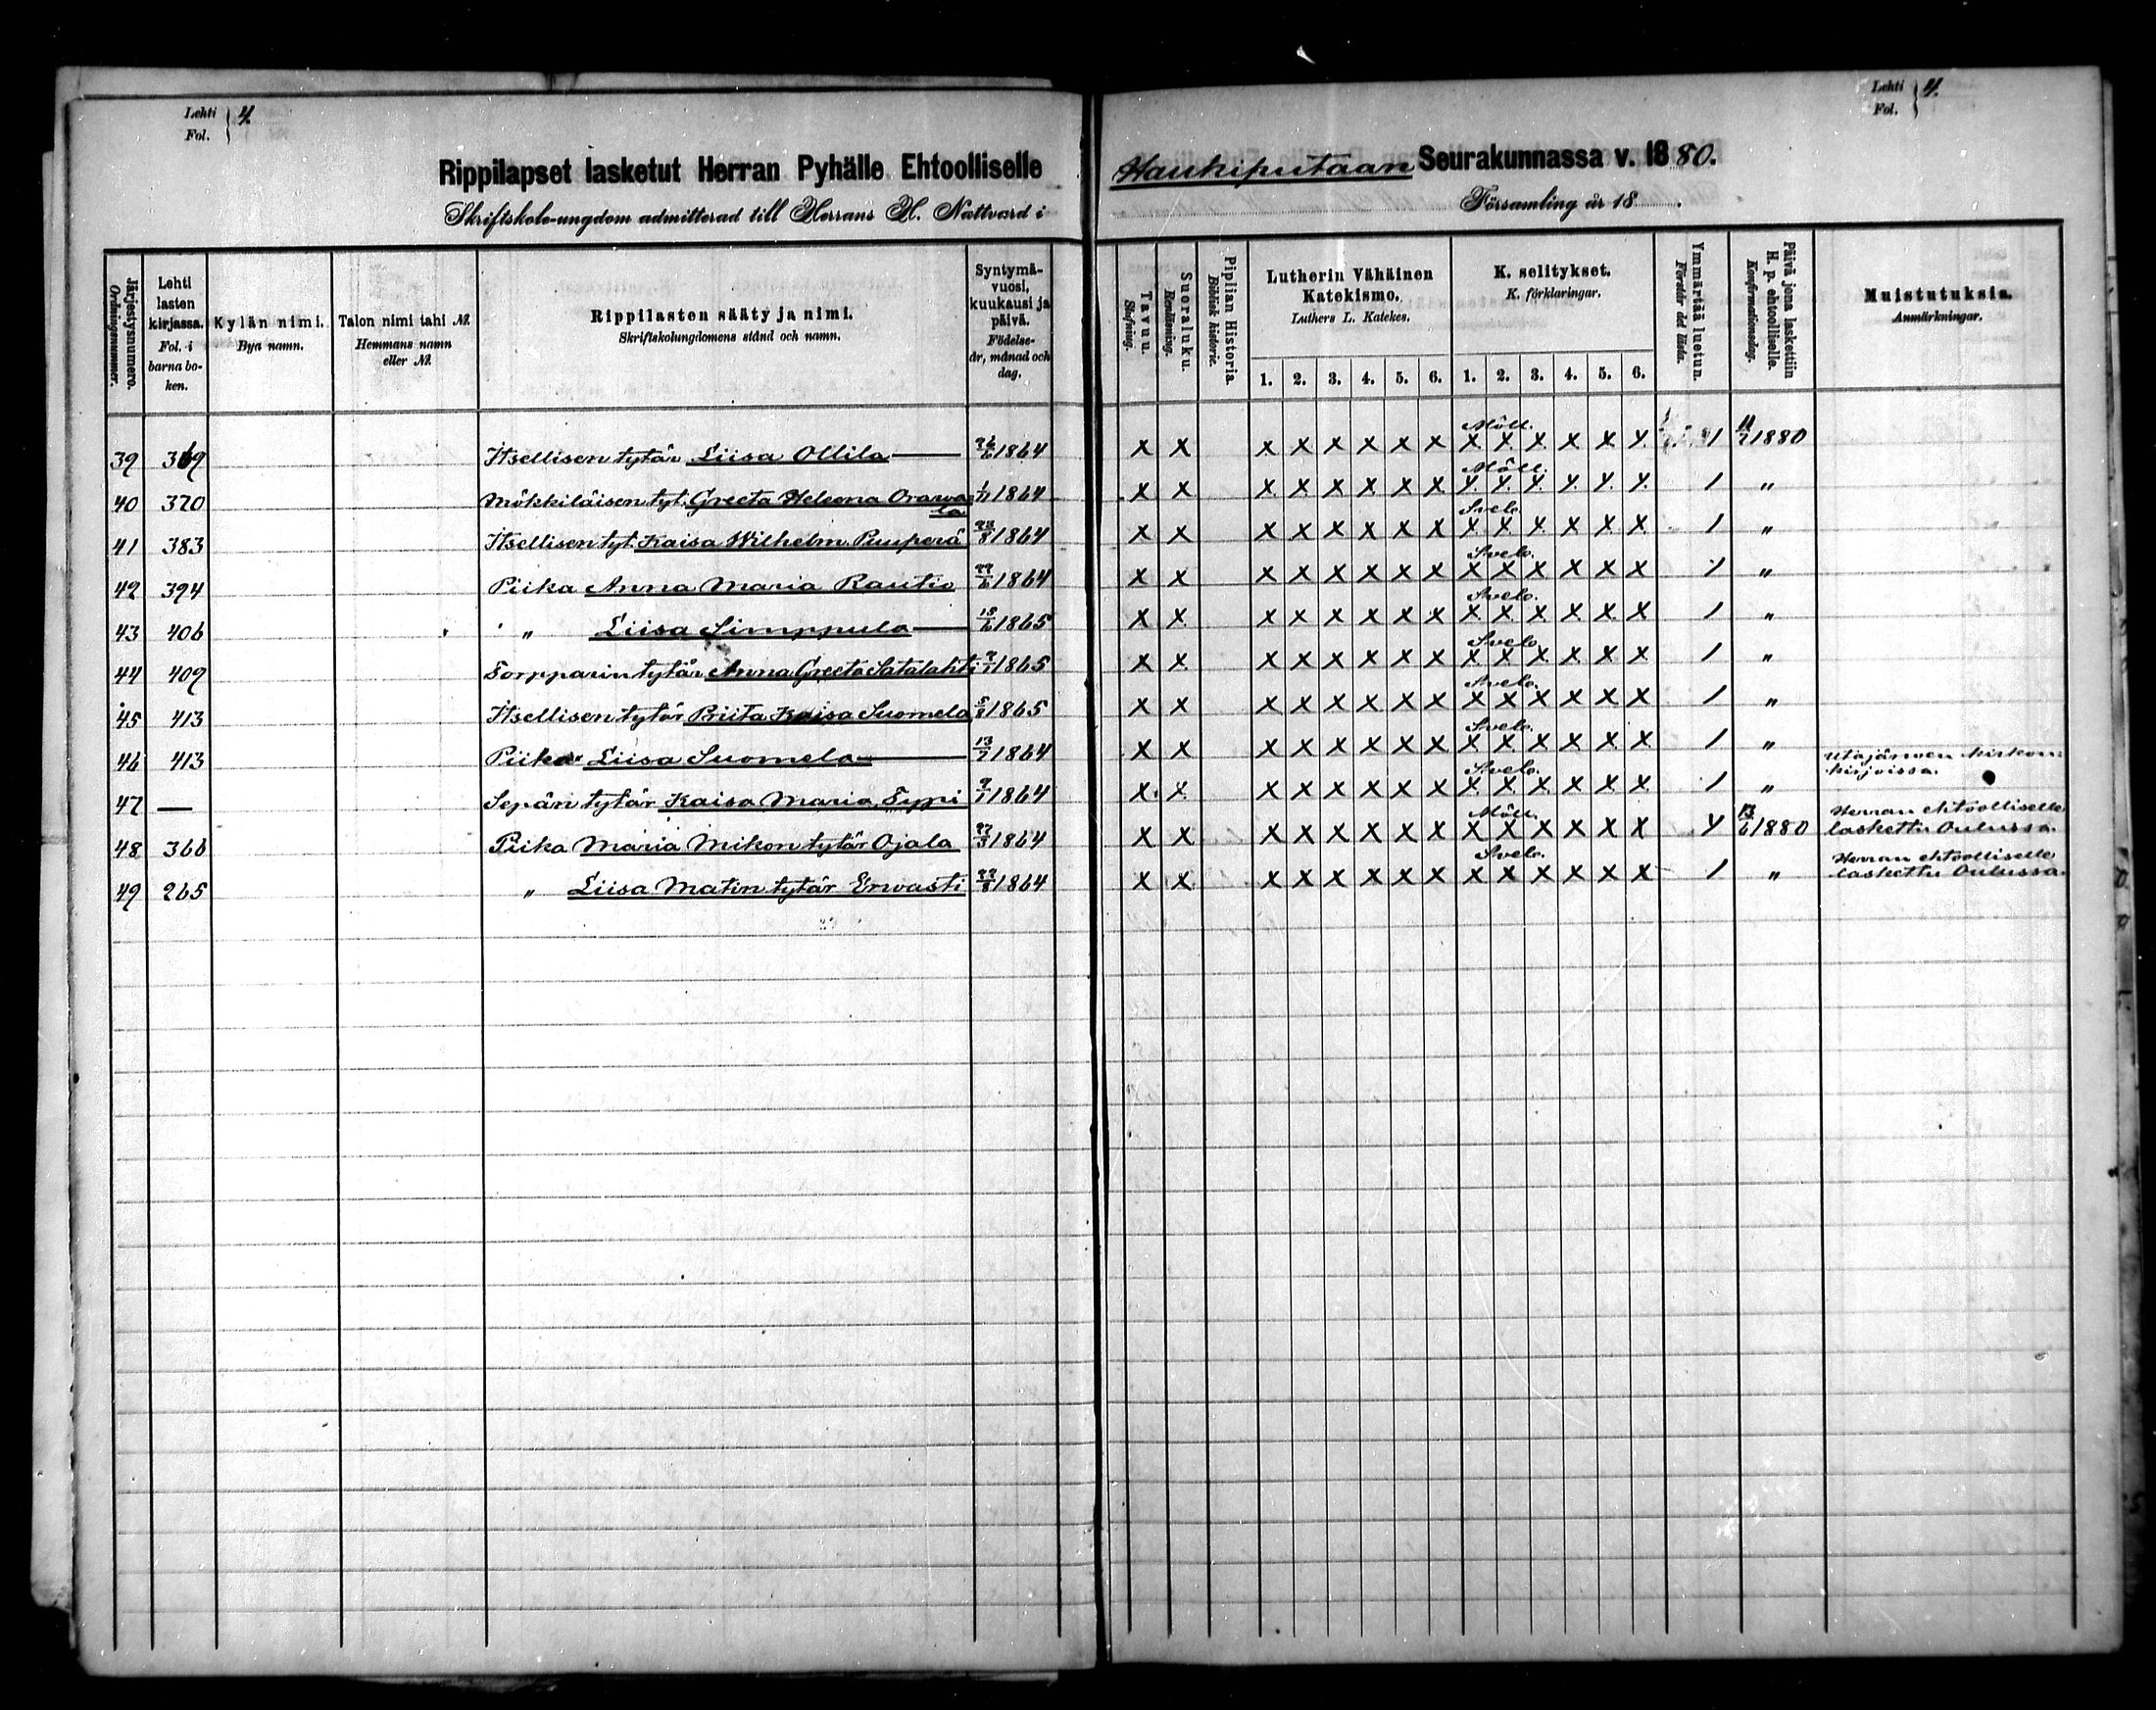 Lehti Fol. } 4.
Lehti Fol. } 4.
Rippilapset lasketut Herran Pyhälle Ehtoolliselle Haukiputaan Seurakunnassa v. 1880.
Skriftskole-ungdom admitterad till Herrans H. Nattvard i Församling år 18 .
Järjestysnumero. Ordningsnummer.
Lehti lasten kirjassa. Fol. i barna boken.
Kylän nimi. Bya namn.
Talon nimi tahi №. Hemmans namn eller №.
Rippilasten sääty ja nimi. Skriftskolungdomens stånd och namn.
Syntymävuosi, kuukausi ja päivä. Födelseår, månad och dag.
Tavuu. Stafning.
Suoraluku. Renläsning.
Piplian Historia. Biblisk historie.
Lutherin Vähäinen Katekismo. Luthers L. Katekes.
1. 2. 3. 4. 5. 6.
K. selitykset. K. förklaringar.
1. 2. 3. 4. 5. 6.
Ymmärtää luetun. Förstår det lästa.
Päivä jona laskettiin H. p. ehtoolliselle. Konfirmationsdag.
Muistutuksia. Anmärkningar.
39 369 Itsellisen tytär Liisa Ollila 26/6 1864 x x x x x x x x Möll. x x x x x x 1 11/7 1880
40 370 Mökkiläisen tyt. Greeta Heleena Orawala 1/11 1864 x x x x x x x x Möll. x x x x x x 1 "
41 383 Itsellisen tyt. Kaisa Wilhelm. Puuperä 28/8 1864 x x x x x x x x Svelo. x x x x x x 1 "
42 394 Piika Anna Maria Rautio 22/6 1864 x x x x x x x x Svelo. x x x x x x 1 "
43 406 " Liisa Simppula 18/6 1865 x x x x x x x x Svelo. x x x x x x 1 "
44 409 Torpparin tytär Anna Greeta Satalahti 2/1 1865 x x x x x x x x Svelo. x x x x x x 1 "
45 413 Itsellisen tytär Briita Kaisa Suomela 5/8 1865 x x x x x x x x Svelo. x x x x x x 1 "
46 413 Piika Liisa Suomela 13/7 1864 x x x x x x x x Svelo. x x x x x x 1 "
47 — Sepän tytär Kaisa Maria Typi 2/1 1864 x x x x x x x x Svelo. x x x x x x 1 " Utajärwen kirkonkirjoissa.
48 366 Piika Maria Mikon tytär Ojala 27/3 1864 x x x x x x x x Möll. x x x x x x x 13/6 1880 Herran ehtoolliselle laskettu Oulussa.
49 265 " Liisa Matin tytär Erwasti 22/8 1864 x x x x x x x x Svelo. x x x x x x 1 " Herran ehtoolliselle laskettu Oulussa.